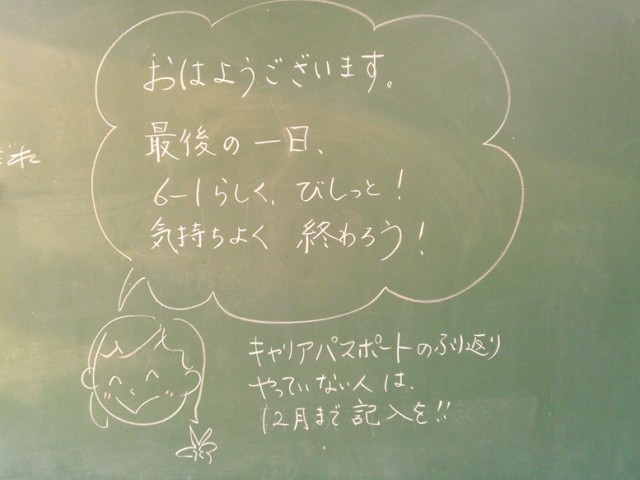 おはようございます。
最後の一日、
6-1らしく、びしっと！
気持ちよく 終わろう！
キャリアパスポートのふり返り
やっていない人は、
12月まで記入を!!